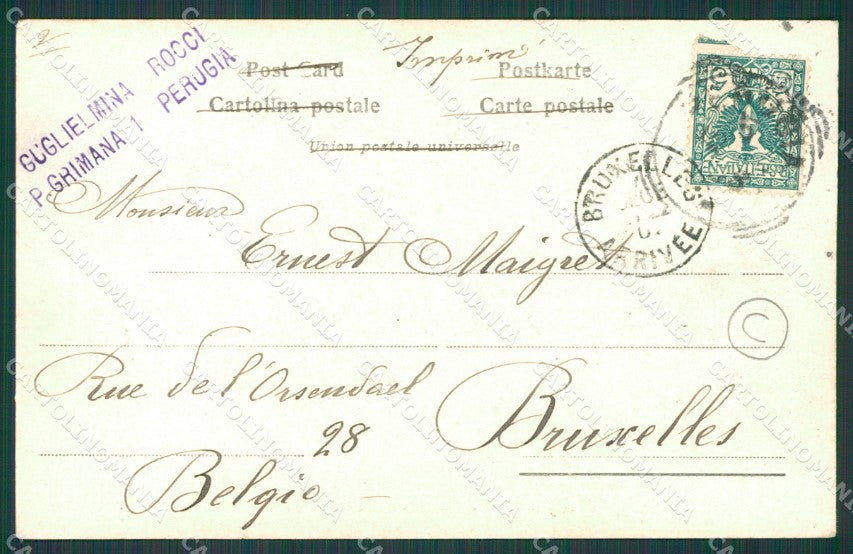 GUGLIELMINA ROCCI
P. GRIMANA 1 PERUGIA
Imprimé
Post Card Postkarte
Cartolina postale Carte postale
Union postale universelle
BRUXELLES
ARRIVÉE
Monsieur
Ernest Maigret
Rue de l'Orsendael
28
Bruxelles
Belgio
C
CARTOLINOMANIA